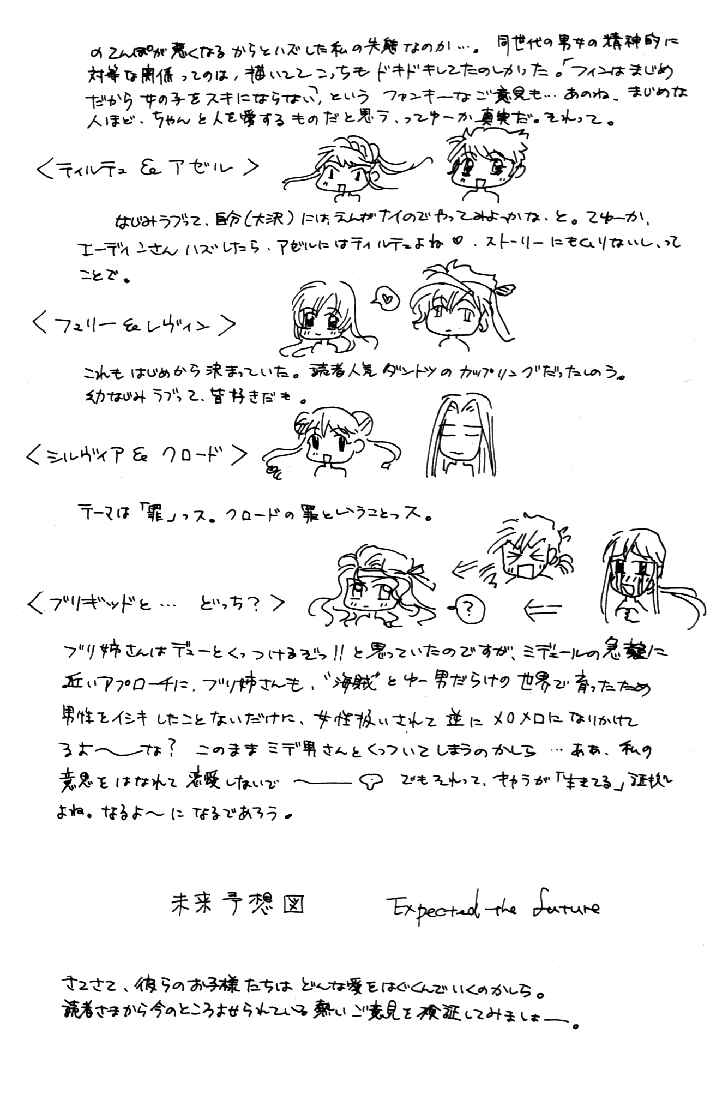 のてんぽが悪くなるからとハズした私の失態なのか…。同世代の男女の精神的に
対等な関係ってのは、描いててこっちもドキドキしてたのしかった。「フィンはまじめ
だから女の子をスキにならない」という ファンキーなご意見も…あのね、まじめな
人ほど、ちゃんと人を愛するものだと思う、ってゆーか真実だ。それって。
<ティルテュ & アゼル>
なじみラブって、自分(大沢)にはえんがナイのでやってみよーかな、と。てゆーか、
エーディンさんハズしたら、アゼルにはティルテュよね♡。ストーリーにもムリないし、って
ことで。
<フュリー & レヴィン>
♡
これもはじめから決まっていた。読者人気ダントツのカップリングだったしのう。
幼なじみラブって、皆好きだも。
<シルヴィア & クロード>
テーマは「罪」っス。クロードの罪ということっス。
<ブリギッドと… どっち?>
?
ブリ姉さんはデューとくっつけるぞっ!!と思っていたのですが、ミデェールの急激に
近いアプローチに、ブリ姉さんも、"海賊"とゆー男だらけの世界で育ったため
男性をイシキしたことないだけに、女性扱いされて逆にメロメロになりかけて
るよ〜な? このままミデ男さんとくっついてしまうのかしら…ああ、私の
意思をはなれて恋愛しないで〜 でもそれって、キャラが「生きてる」証拠
よね。なるよ〜になるであろう。
未来予想図 Expected the future
さてさて、彼らのお子様たちはどんな愛をはぐくんでいくのかしら。
読者さまから今のところよせられている熱いご意見を検証してみましょー。